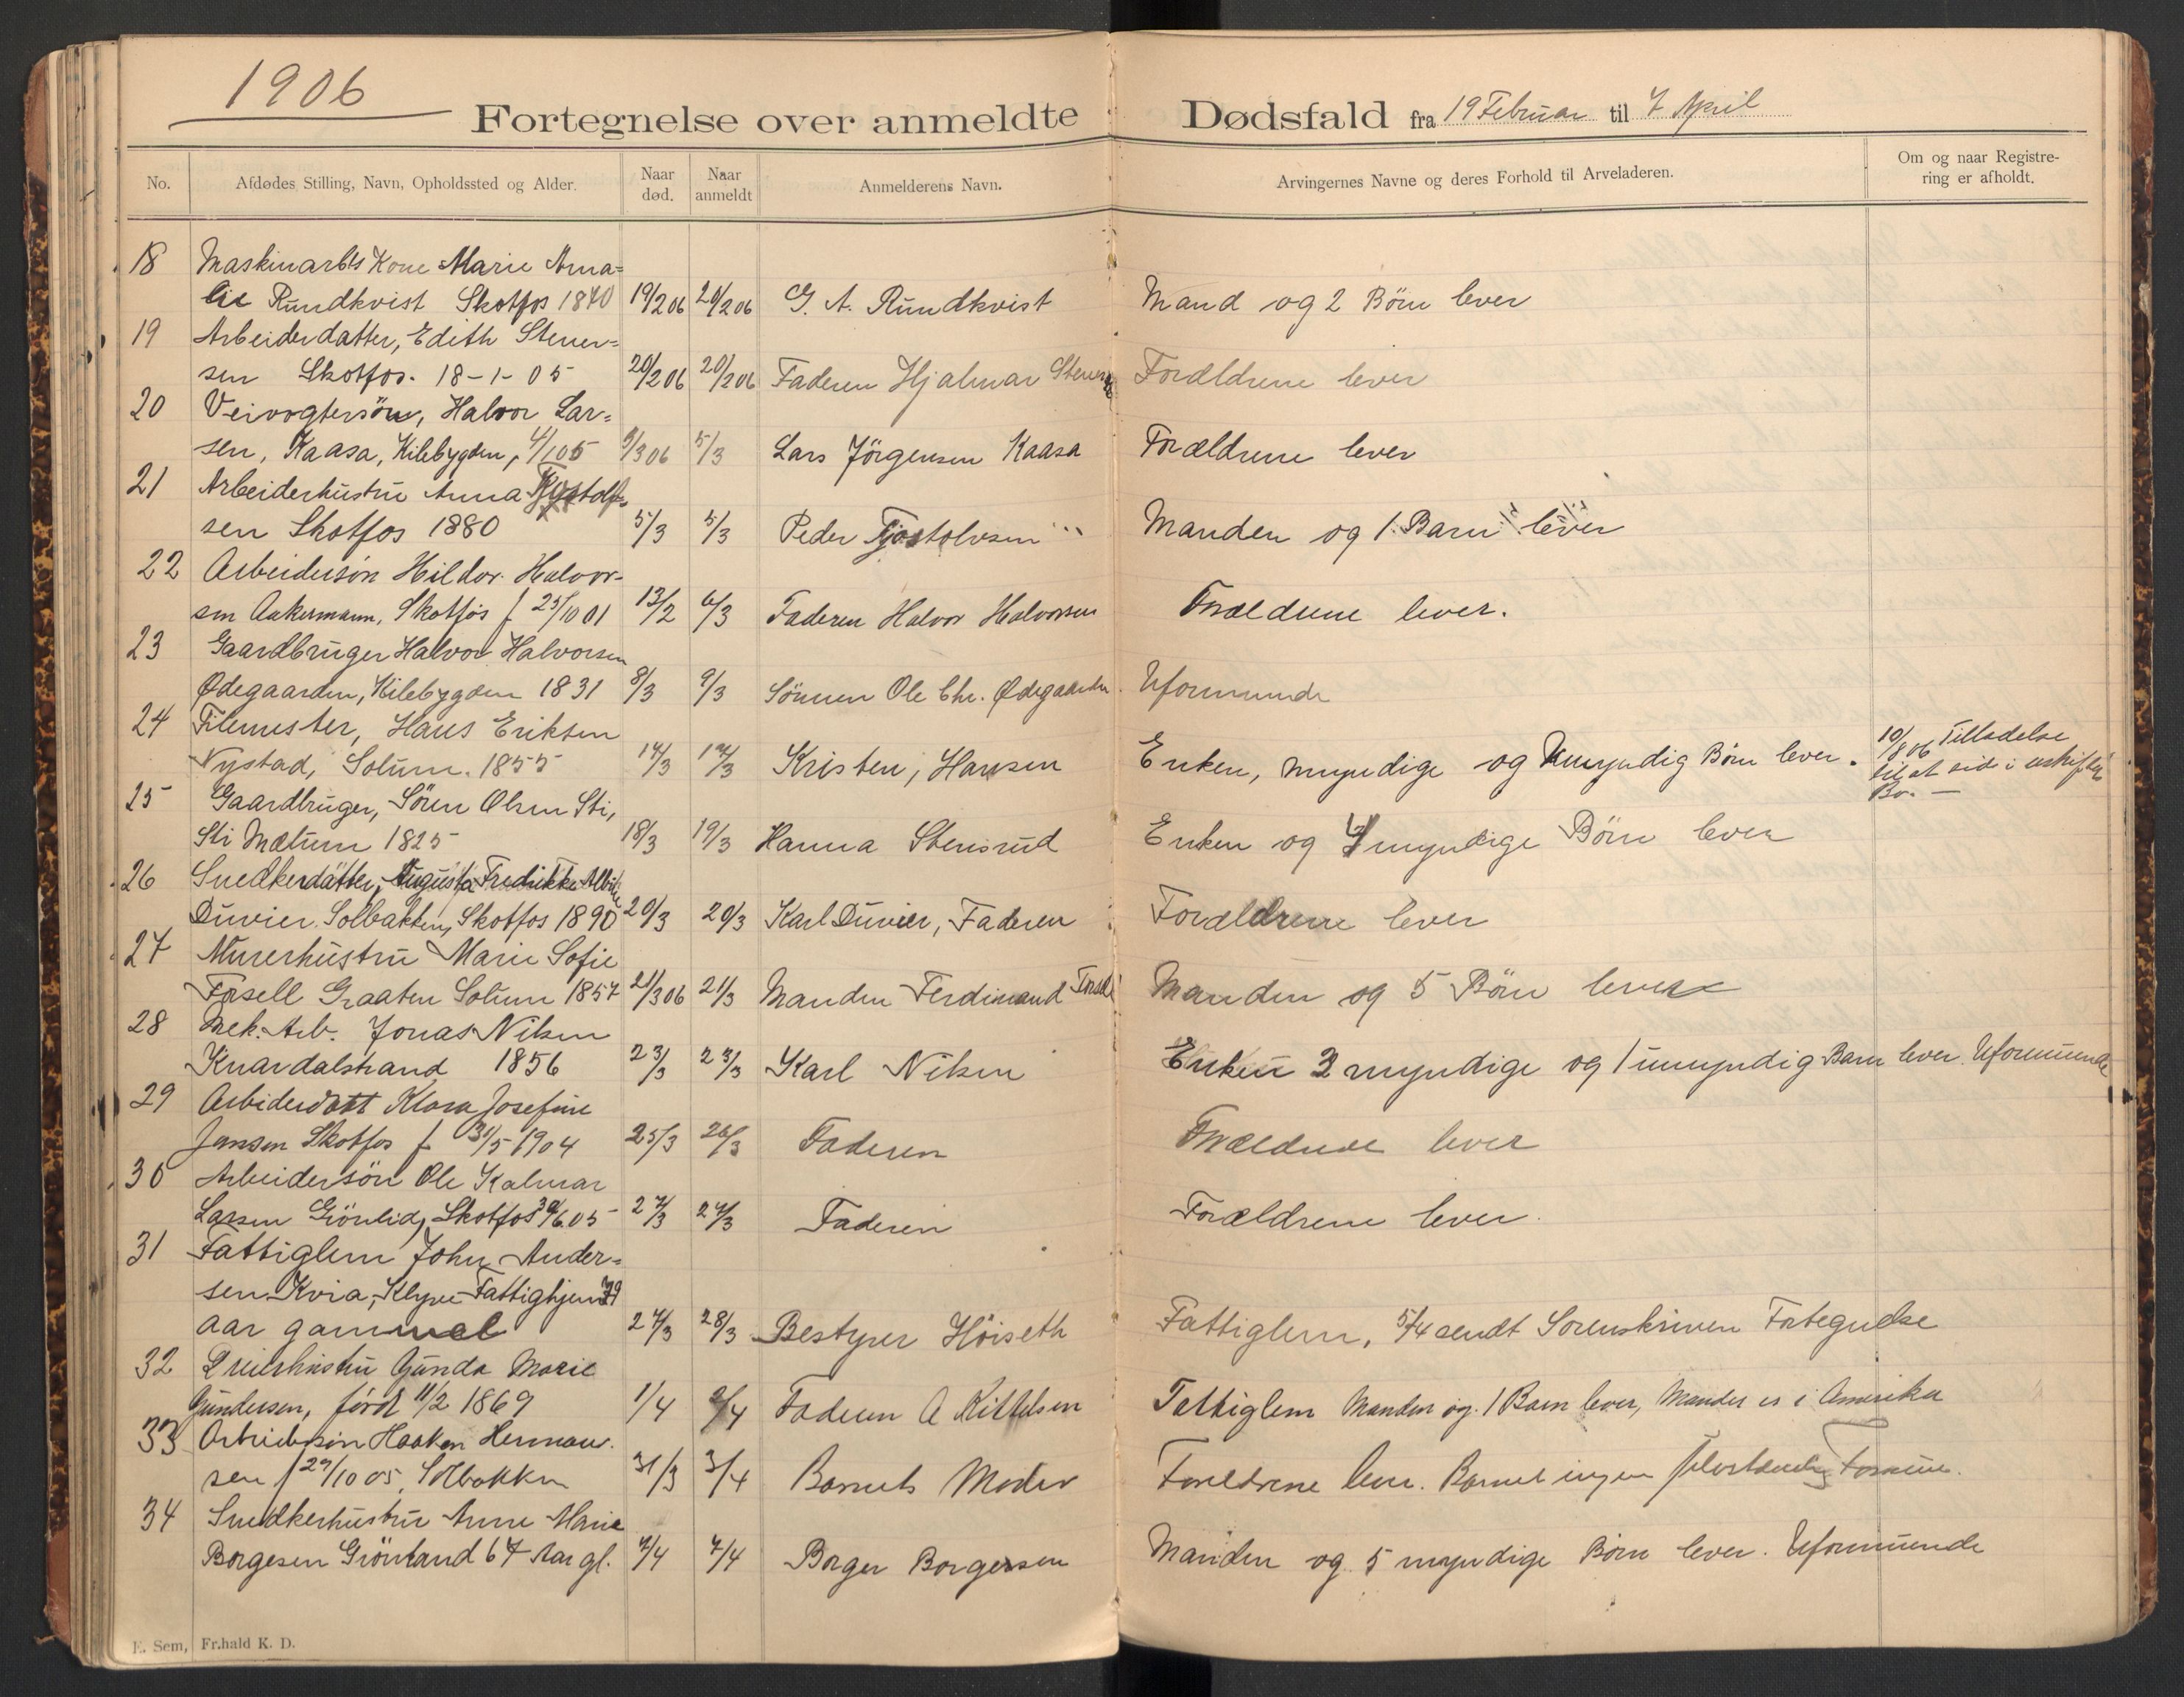 1906
Fortegnelse over anmeldte Dødsfald fra 19 Februar til 7 April
No. Afdødes Stilling, Navn, Opholdssted og Alder. Naar død. Naar anmeldt Anmelderens Navn. Arvingernes Navne og deres Forhold til Arveladeren. Om og naar Registrering er afholdt.
18 Maskinarbts Kone Marie Ama=
lie Rundkvist Skotfos 1840 19/2 06 20/2 06 G. A. Rundkvist Mand og 2 Börn lever
19 Arbeiderdatter, Edith Stener=
sen Skotfos. 18-1-05 20/2 06 20/2 06 Faderen Hjalmar Forældrene lever
20 Veivogtersön, Halvor Lar=
sen, Kaasa, Kilebygden, 4/1 05 3/3 06 5/3 Lars Jörgensen Kaasa Forældrene lever
21 Arbeiderhustru Anna
sen Skotfos 1880 5/3 5/3 Peder Tjostolvsen Manden og 1 Barn lever
22 Arbeidersön Hildor Halvor-
sen Aakermann, Skotfos f 25/10 01 13/2 6/3 Faderen Halvor Halvorsen Forældrene lever.
23 Gaardbruger Halvor Halvorsen
Ødegaarden, Kilebygden 1831 8/3 9/3 Sönnen Ole Chr. Ødegaarden Uformuende
24 Filemester, Hans Eriksen
Nystad, Solum. 1855 14/3 14/3 Kristen, Hansen Enken, myndige og Umyndig Börn lever. 10/8 06 Tilladelse
til at sid i uskiftet
Bo. —
25 Gaardbruger, Sören Olsen Sti,
Sti Mælum 1825 18/3 19/3 Hanna Stensrud Enken og myndige Börn lever
26 Snedkerdatter, Augusta Fredrikke
Duvier Solbakken, Skotfos 1890 20/3 20/3 Karl Duvier, Faderen Forældrene lever
27 Murerhustru Marie Sofie
Fosell Graaten Solum 1857 21/3 06 21/3 Manden Ferdinand Manden og 5 Börn lever
28 Mek. Arb. Jonas Nilsen
Knardalstrand 1856 23/3 23/3 Karl Nilsen Enken 2 myndige og 1 umyndig Barn lever. Uformuende
29 Arbeiderdatt Klara Josefine
Jansen Skotfos f 31/5 1904 25/3 26/3 Faderen Forældrene lever
30 Arbeidersön Ole Kalmar
Larsen Grönlid, Skotfos 30/6.05 27/3 27/3 Faderen Forældrene lever.
31 Fattiglem John Ander=
sen Kvia, Klyve Fattighjem 79
aar gammel 27/3 28/3 Bestyrer Höiseth Fattiglem, 5/4 sendt Sorenskriveren Fortegnelse
32 Dreierhustru Gunda Marie
Gundersen, född 11/2 1869 1/4 2/4 Faderen A Kittelsen Fattiglem Manden og 1 Barn lever, Manden er i Amerika
33 Arbeidersön Haakon Herman-
sen f 29/10 05, Solbakken 31/3 3/4 Barnets Moder Forældrene lever. Barnet ingen selvstændig Formue.
34 Snedkerhustru Anne Marie
Borgesen Grönland 67 Aar gl. 7/4 7/4 Borger Borgersen Manden og 5 myndige Börn lever. Uformuende
E. Sem, Fr.hald K. D.